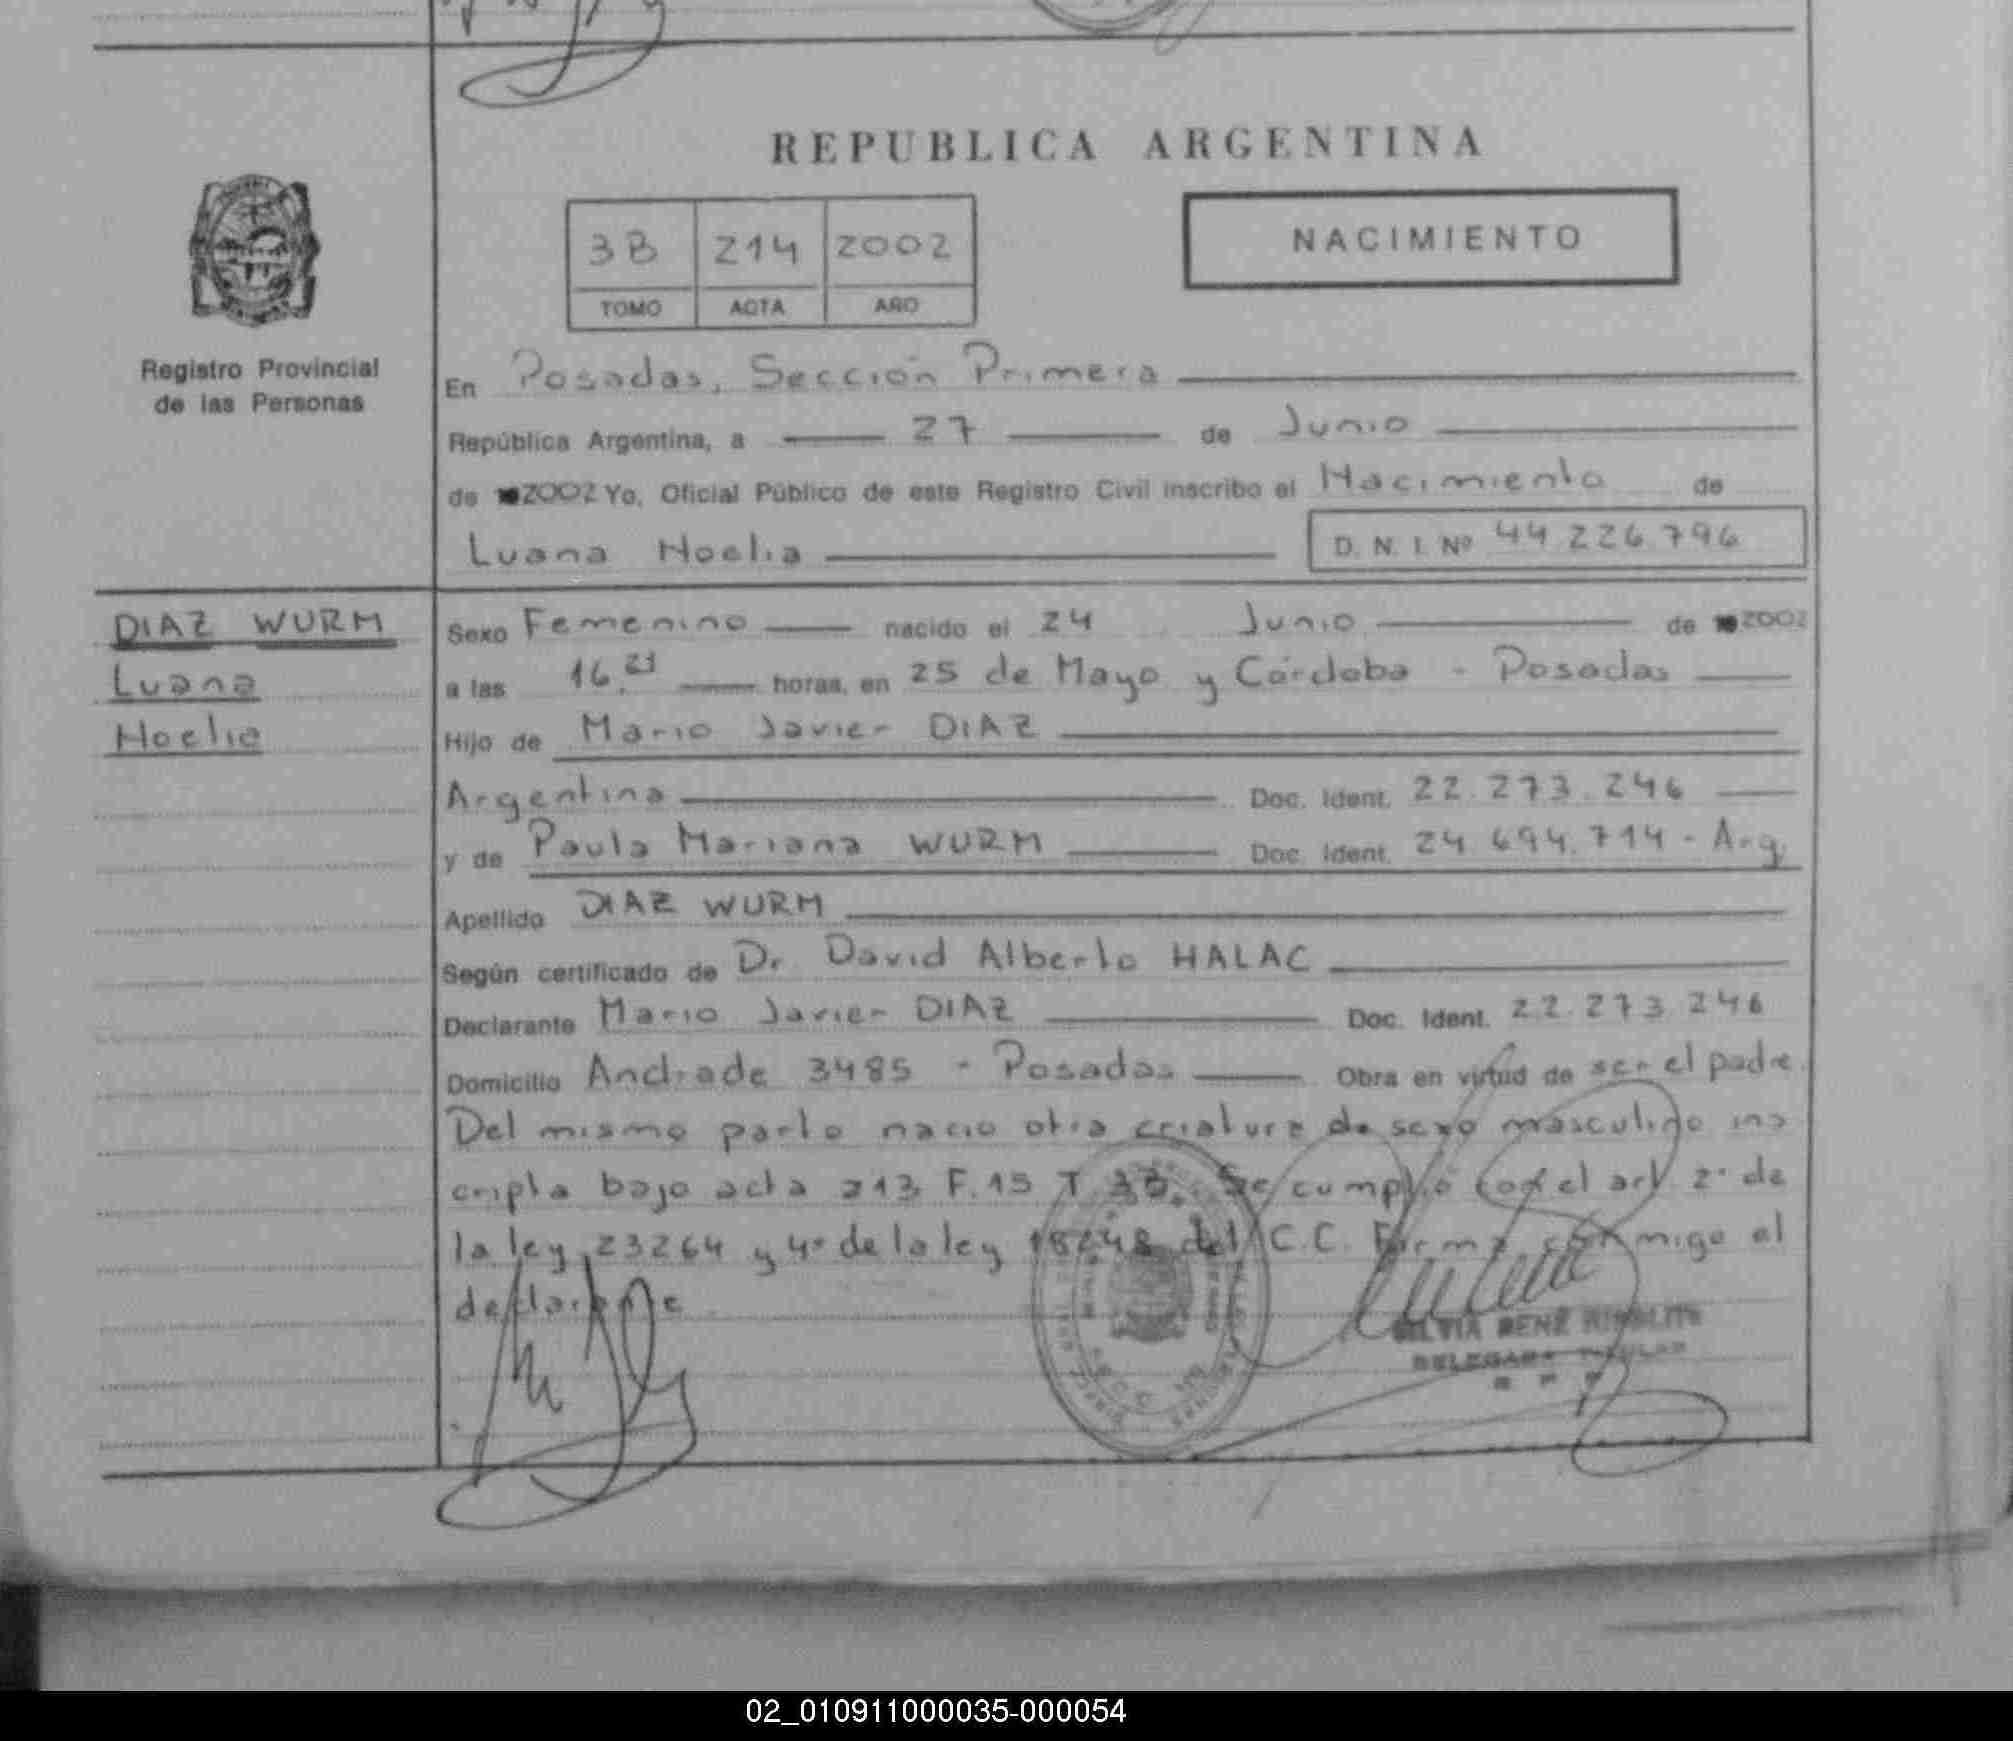 REPUBLICA ARGENTINA
3B 214 2002
TOMO ACTA AÑO
NACIMIENTO
Registro Provincial
de las Personas
En Posadas, Sección Primera
República Argentina, a 27 de Junio
de 2002 Yo, Oficial Público de este Registro Civil inscribo el Nacimiento de
Luana Noelia
D. N. I. Nº 44 226 796
DIAZ WURM
Luana
Noelia
Sexo Femenino nacido el 24 Junio de 2002
a las 16.21 horas, en 25 de Mayo y Córdoba - Posadas
Hijo de Mario Javier DIAZ
Argentina Doc. Ident. 22.273.246
y de Paula Mariana WURM Doc. Ident. 24.694.714 - Arg.
Apellido DIAZ WURM
Según certificado de Dr. David Alberto HALAC
Declarante Mario Javier DIAZ Doc. Ident. 22.273.246
Domicilio Andrade 3485 - Posadas Obra en virtud de ser el padre.
Del mismo parto nacio otra criatura de sexo masculino ins
cripta bajo acta 213 F.15 T 3B. Se cumplió con el art 2º de
la ley 23264 y 4º de la ley 18248 del C.C. Firma conmigo el
declarante
SILVIA RENÉ
DELEGADA TITULAR
02_010911000035-000054